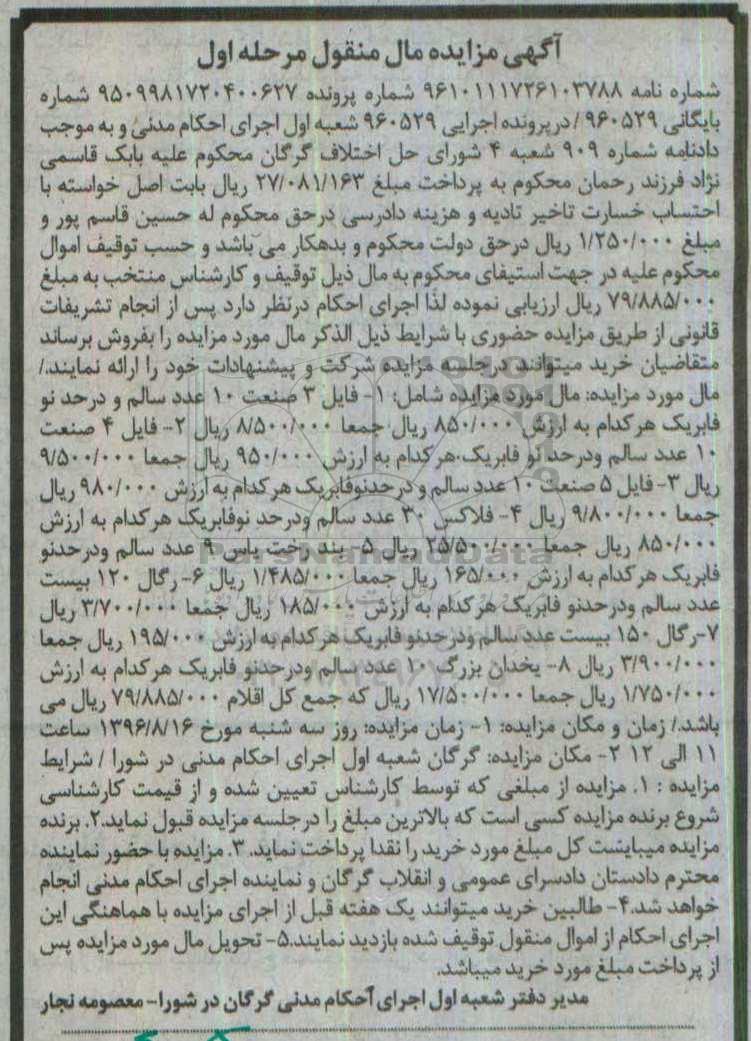 آگهی مزایده مال منقول مرحله اول
شماره نامه ۹۶۱۰۱۱۱۷۲۶۱۰۳۷۸۸ شماره پرونده ۹۵۰۹۹۸۱۷۲۰۴۰۰۶۲۷ شماره
بایگانی ۹۶۰۵۲۹ / درپرونده اجرایی ۹۶۰۵۲۹ شعبه اول اجرای احکام مدنی و به موجب
دادنامه شماره ۹۰۹ شعبه ۴ شورای حل اختلاف گرگان محکوم علیه بابک قاسمی
نژاد فرزند رحمان محکوم به پرداخت مبلغ ۲۷/۰۸۱/۱۶۳ ریال بابت اصل خواسته با
احتساب خسارت تاخیر تادیه و هزینه دادرسی درحق محکوم له حسین قاسم پور و
مبلغ ۱/۲۵۰/۰۰۰ ریال درحق دولت محکوم و بدهکار می باشد و حسب توقیف اموال
محکوم علیه در جهت استیفای محکوم به مال ذیل توقیف و کارشناس منتخب به مبلغ
۷۹/۸۸۵/۰۰۰ ریال ارزیابی نموده لذا اجرای احکام درنظر دارد پس از انجام تشریفات
قانونی از طریق مزایده حضوری با شرایط ذیل الذکر مال مورد مزایده را بفروش برساند
متقاضیان خرید میتوانند درجلسه مزایده شرکت و پیشنهادات خود را ارائه نمایند./
مال مورد مزایده: مال مورد مزایده شامل: ۱- فایل ۳ صنعت ۱۰ عدد سالم و درحد نو
فابریک هرکدام به ارزش ۸۵۰/۰۰۰ ریال جمعا ۸/۵۰۰/۰۰۰ ریال ۲- فایل ۴ صنعت
۱۰ عدد سالم ودرحد نو فابریک هرکدام به ارزش ۹۵۰/۰۰۰ ریال جمعا ۹/۵۰۰/۰۰۰
ریال ۳- فایل ۵ صنعت ۱۰ عدد سالم و درحدنوفابریک هرکدام به ارزش ۹۸۰/۰۰۰ ریال
جمعا ۹/۸۰۰/۰۰۰ ریال ۴- فلاکس ۳۰ عدد سالم ودرحد نوفابریک هرکدام به ارزش
۸۵۰/۰۰۰ ریال جمعا ۲۵/۵۰۰/۰۰۰ ریال ۵- بند رخت یاس ۹ عدد سالم ودرحدنو
فابریک هرکدام به ارزش ۱۶۵/۰۰۰ ریال جمعا ۱/۴۸۵/۰۰۰ ریال ۶- رگال ۱۲۰ بیست
عدد سالم ودرحدنو فابریک هرکدام به ارزش ۱۸۵/۰۰۰ ریال جمعا ۳/۷۰۰/۰۰۰ ریال
۷-رگال ۱۵۰ بیست عدد سالم ودرحدنو فابریک هرکدام به ارزش ۱۹۵/۰۰۰ ریال جمعا
۳/۹۰۰/۰۰۰ ریال ۸- یخدان بزرگ ۱۰ عدد سالم ودرحدنو فابریک هرکدام به ارزش
۱/۷۵۰/۰۰۰ ریال جمعا ۱۷/۵۰۰/۰۰۰ ریال که جمع کل اقلام ۷۹/۸۸۵/۰۰۰ ریال می
باشد./ زمان و مکان مزایده: ۱- زمان مزایده: روز سه شنبه مورخ ۱۳۹۶/۸/۱۶ ساعت
۱۱ الی ۱۲ ۲- مکان مزایده: گرگان شعبه اول اجرای احکام مدنی در شورا / شرایط
مزایده : ۱. مزایده از مبلغی که توسط کارشناس تعیین شده و از قیمت کارشناسی
شروع برنده مزایده کسی است که بالاترین مبلغ را درجلسه مزایده قبول نماید.۲. برنده
مزایده میبایست کل مبلغ مورد خرید را نقدا پرداخت نماید. ۳. مزایده با حضور نماینده
محترم دادستان دادسرای عمومی و انقلاب گرگان و نماینده اجرای احکام مدنی انجام
خواهد شد.۴- طالبین خرید میتوانند یک هفته قبل از اجرای مزایده با هماهنگی این
اجرای احکام از اموال منقول توقیف شده بازدید نمایند.۵- تحویل مال مورد مزایده پس
از پرداخت مبلغ مورد خرید میباشد.
مدیر دفتر شعبه اول اجرای احکام مدنی گرگان در شورا- معصومه نجار
ParsNamadData